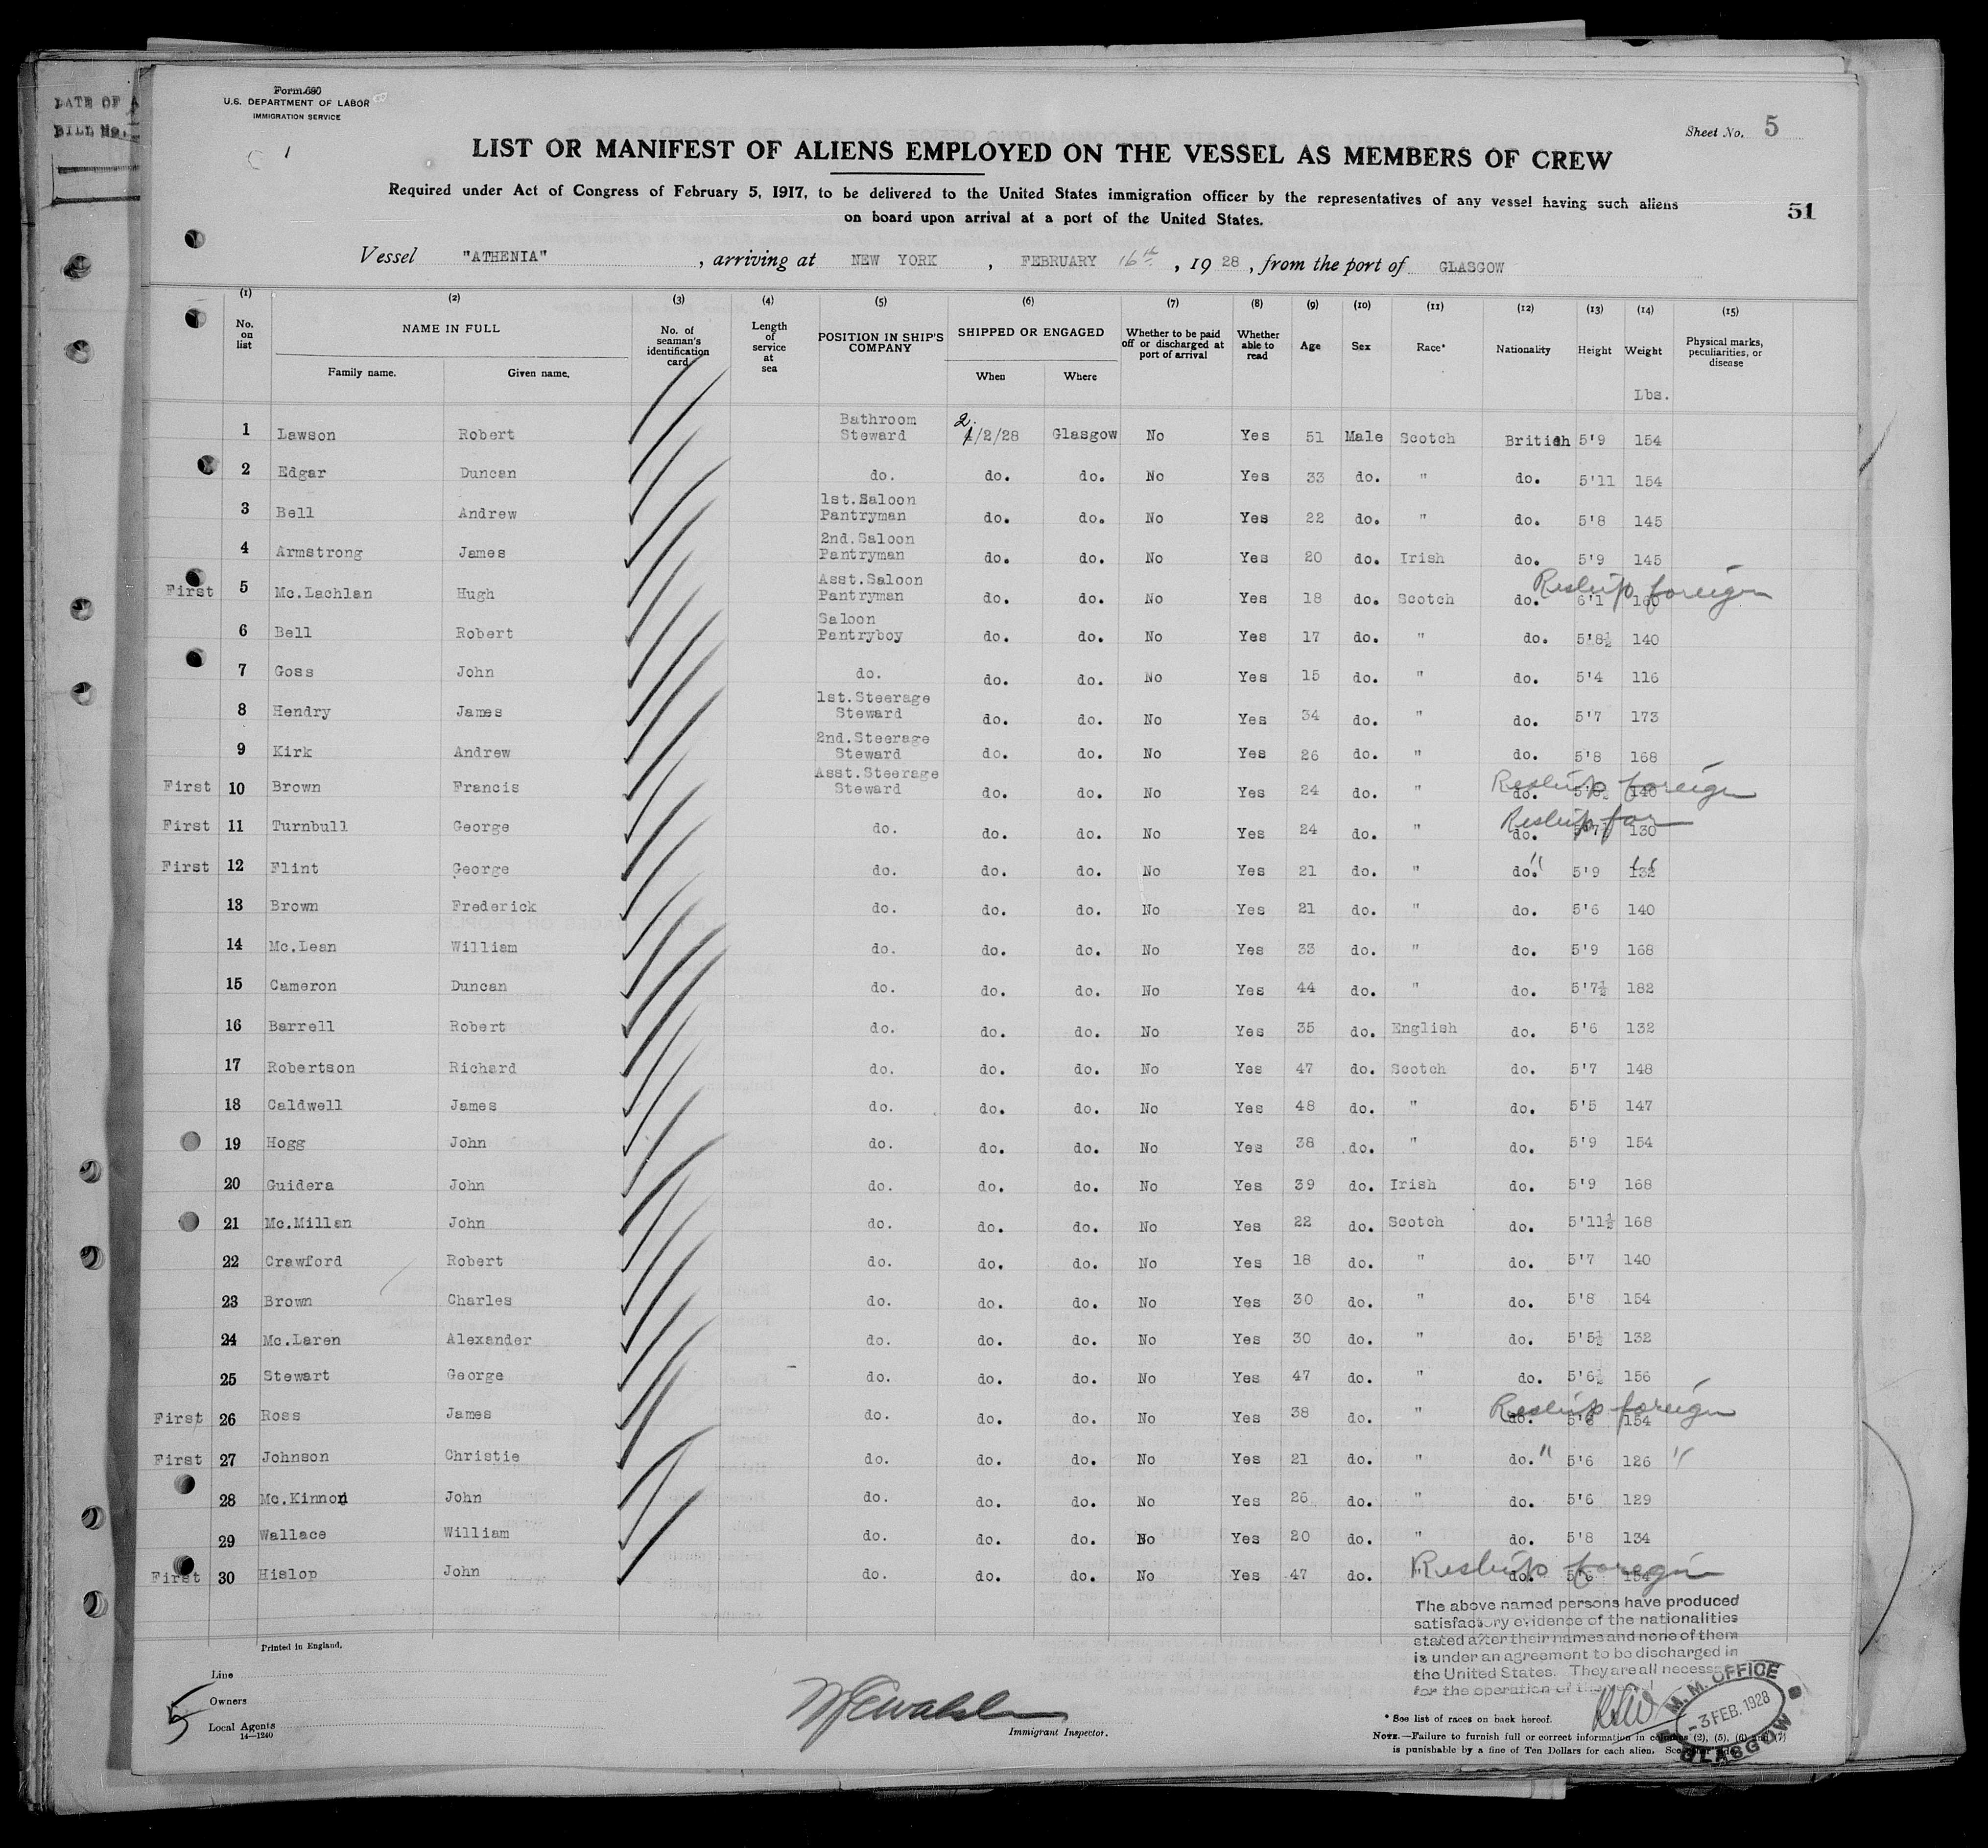 DATE OF A
BILL No.
Form 680
U.S. DEPARTMENT OF LABOR
IMMIGRATION SERVICE
Sheet No. 5
LIST OR MANIFEST OF ALIENS EMPLOYED ON THE VESSEL AS MEMBERS OF CREW
Required under Act of Congress of February 5, 1917, to be delivered to the United States immigration officer by the representatives of any vessel having such aliens
on board upon arrival at a port of the United States.
51
Vessel "ATHENIA" , arriving at NEW YORK , FEBRUARY 16th , 1928 , from the port of GLASGOW
(1) (2) (3) (4) (5) (6) (7) (8) (9) (10) (11) (12) (13) (14) (15)
No. on list NAME IN FULL Family name. Given name. No. of seaman's identification card Length of service at sea POSITION IN SHIP'S COMPANY SHIPPED OR ENGAGED When Where Whether to be paid off or discharged at port of arrival Whether able to read Age Sex Race* Nationality Height Weight Physical marks, peculiarities, or disease
Lbs.
1 Lawson Robert Bathroom Steward 2/2/28 Glasgow No Yes 51 Male Scotch British 5'9 154
2 Edgar Duncan do. do. do. No Yes 33 do. " do. 5'11 154
3 Bell Andrew 1st.Saloon Pantryman do. do. No Yes 22 do. " do. 5'8 145
4 Armstrong James 2nd.Saloon Pantryman do. do. No Yes 20 do. Irish do. 5'9 145
First 5 Mc.Lachlan Hugh Asst.Saloon Pantryman do. do. No Yes 18 do. Scotch do. 6'1 160 Reship foreign
6 Bell Robert Saloon Pantryboy do. do. No Yes 17 do. " do. 5'8½ 140
7 Goss John do. do. do. No Yes 15 do. " do. 5'4 116
8 Hendry James 1st.Steerage Steward do. do. No Yes 34 do. " do. 5'7 173
9 Kirk Andrew 2nd.Steerage Steward do. do. No Yes 26 do. " do. 5'8 168
First 10 Brown Francis Asst.Steerage Steward do. do. No Yes 24 do. " do. 140 Reship foreign
First 11 Turnbull George do. do. do. No Yes 24 do. " do. 130 Reship for
First 12 Flint George do. do. do. No Yes 21 do. " do. " 5'9 132 "
13 Brown Frederick do. do. do. No Yes 21 do. " do. 5'6 140
14 Mc.Lean William do. do. do. No Yes 33 do. " do. 5'9 168
15 Cameron Duncan do. do. do. No Yes 44 do. " do. 5'7½ 182
16 Barrell Robert do. do. do. No Yes 35 do. English do. 5'6 132
17 Robertson Richard do. do. do. No Yes 47 do. Scotch do. 5'7 148
18 Caldwell James do. do. do. No Yes 48 do. " do. 5'5 147
19 Hogg John do. do. do. No Yes 38 do. " do. 5'9 154
20 Guidera John do. do. do. No Yes 39 do. Irish do. 5'9 168
21 Mc.Millan John do. do. do. No Yes 22 do. Scotch do. 5'11½ 168
22 Crawford Robert do. do. do. No Yes 18 do. " do. 5'7 140
23 Brown Charles do. do. do. No Yes 30 do. " do. 5'8 154
24 Mc.Laren Alexander do. do. do. No Yes 30 do. " do. 5'5½ 132
25 Stewart George do. do. do. No Yes 47 do. " do. 5'6½ 156
First 26 Ross James do. do. do. No Yes 38 do. " do. 154 Reship foreign
First 27 Johnson Christie do. do. do. No Yes 21 do. " do. " 5'6 126 "
28 Mc.Kinnon John do. do. do. No Yes 26 do. " do. 5'6 129
29 Wallace William do. do. do. No Yes 20 do. " do. 5'8 134
First 30 Hislop John do. do. do. No Yes 47 do. do. 5'6 154 Reship foreign
The above named persons have produced
satisfactory evidence of the nationalities
stated after their names and none of them
is under an agreement to be discharged in
the United States. They are all necess
for the operation of the
Printed in England.
Line
Owners
Local Agents
14—1240
5
Immigrant Inspector.
M. M. OFFICE
-3 FEB. 1928
GLASGOW
* See list of races on back hereof.
NOTE.—Failure to furnish full or correct information in columns (2), (5), (6) and (7)
is punishable by a fine of Ten Dollars for each alien. See